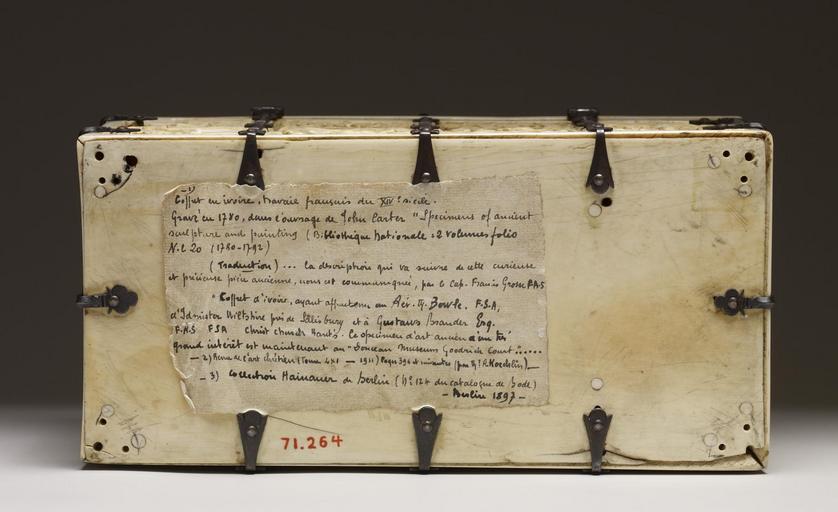 1)
Coffret en ivoire, travail français du XIVe siècle.
Gravé en 1780, dans l'ouvrage de John Carter "Specimens of ancient
sculpture and painting (Bibliothèque Nationale : 2 volumes folio
N.L 20 (1780-1792)
(Traduction) ... la description qui va suivre de cette curieuse
et précieuse pièce ancienne, nous est communiquée, par le Cap. Francis Grose F.A.S
"Coffret d'ivoire, ayant appartenu au Rév. Bowle. F.S.A,
d'Idmister Wiltshire près de Salisbury et à Gustavus Brander Esq.
F.R.S FSA Christ Church Hants. Ce specimen d'art ancien d'un très
grand intérêt est maintenant au "Doucean Museum Goodrich Court"......
— 2) Revue de l'art chrétien (Tome — 1911) Pages 394 et suivantes (par Mr R. Koechlin) —
— 3) Collection Hainauer de Berlin (No 124 du catalogue de Bode)
— Berlin 1897 —
71.264